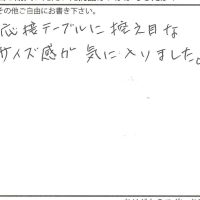 その他ご自由にお書き下さい。
応接テーブルに控え目な
サイズ感が気に入りました。